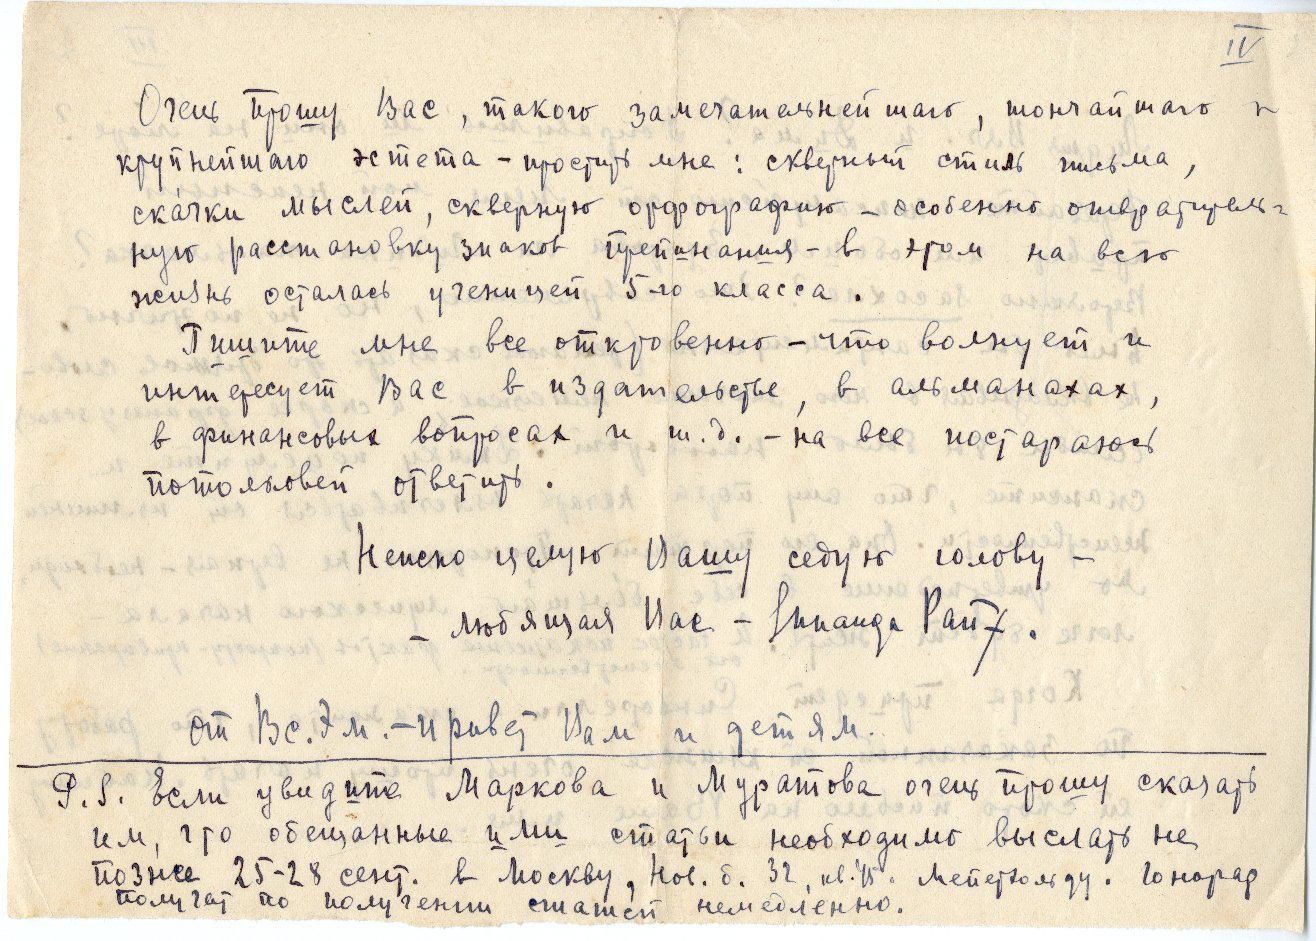 IV
Очень прошу Вас, такого замечательнейшаго, тончайшаго и
крупнейшаго эстета – простить мне: скверный стиль письма,
скачки мыслей, скверную орфографию – особенно отвратитель-
ную расстановку знаков препинания – в этом на всю
жизнь осталась ученицей 5-го класса.
Пишите мне все откровенно – что волнует и
интересует Вас в издательстве, в альманахах,
в финансовых вопросах и т.д. – на все постараюсь
потолковей ответить.
Нежно целую Вашу седую голову –
– любящая Вас – Зинаида Райх.
От Вс. Эм. – привет Вам и детям.
P.S. Если увидите Маркова и Муратова очень прошу сказать
им, что обещанные ими статьи необходимо выслать не
позже 25-28 сент. в Москву, Нов. б. 32, кв. 45. Мейерхольду. Гонорар
получат по получении статей немедленно.